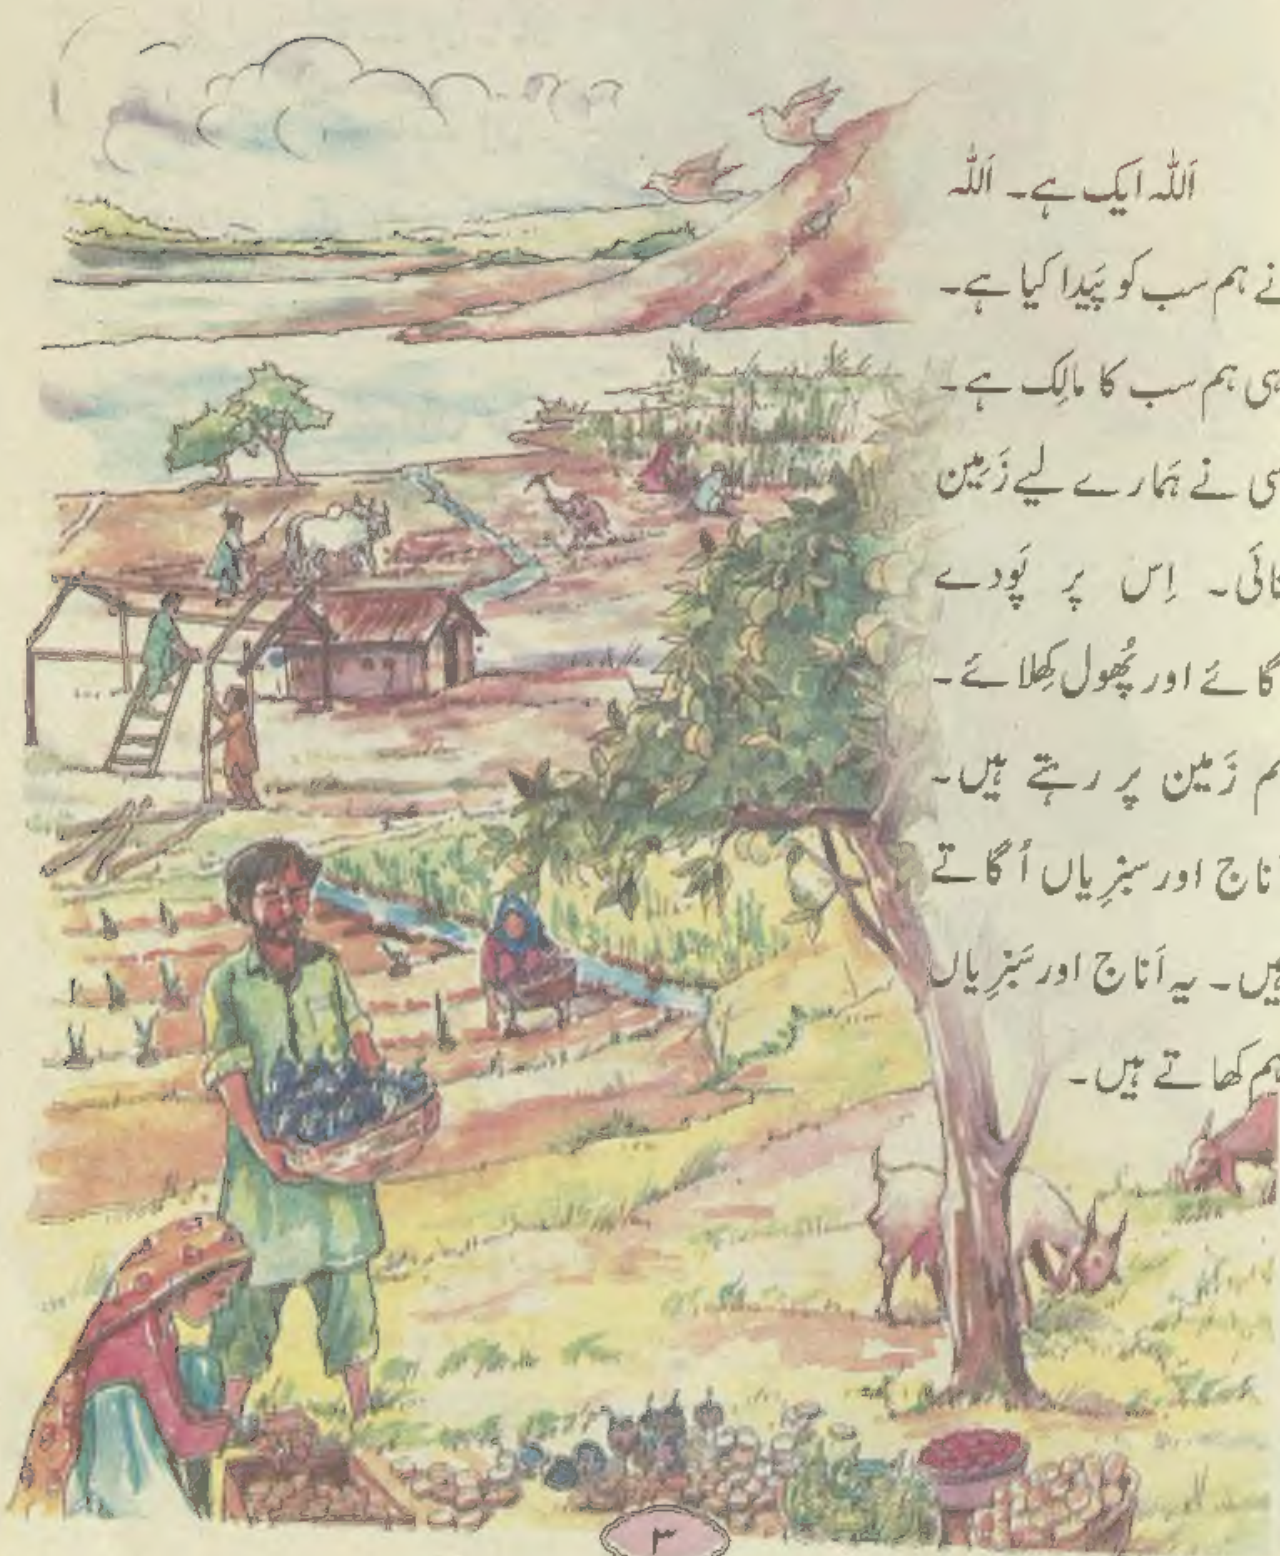 اَللہ ایک ہے۔ اَللہ
نے ہم سب کو پَیدا کیا ہے۔
ہی ہم سب کا مالِک ہے۔
سی نے ہَمارے لیے زَمِین
ئی۔ اِس پر پَودے
گائے اور پُھول کِھلائے۔
م زَمین پر رہتے ہیں۔
ناج اور سبزِیاں اُگاتے
ہیں۔ یہ اَناج اور سَبزِیاں
ہم کھاتے ہیں۔
۳